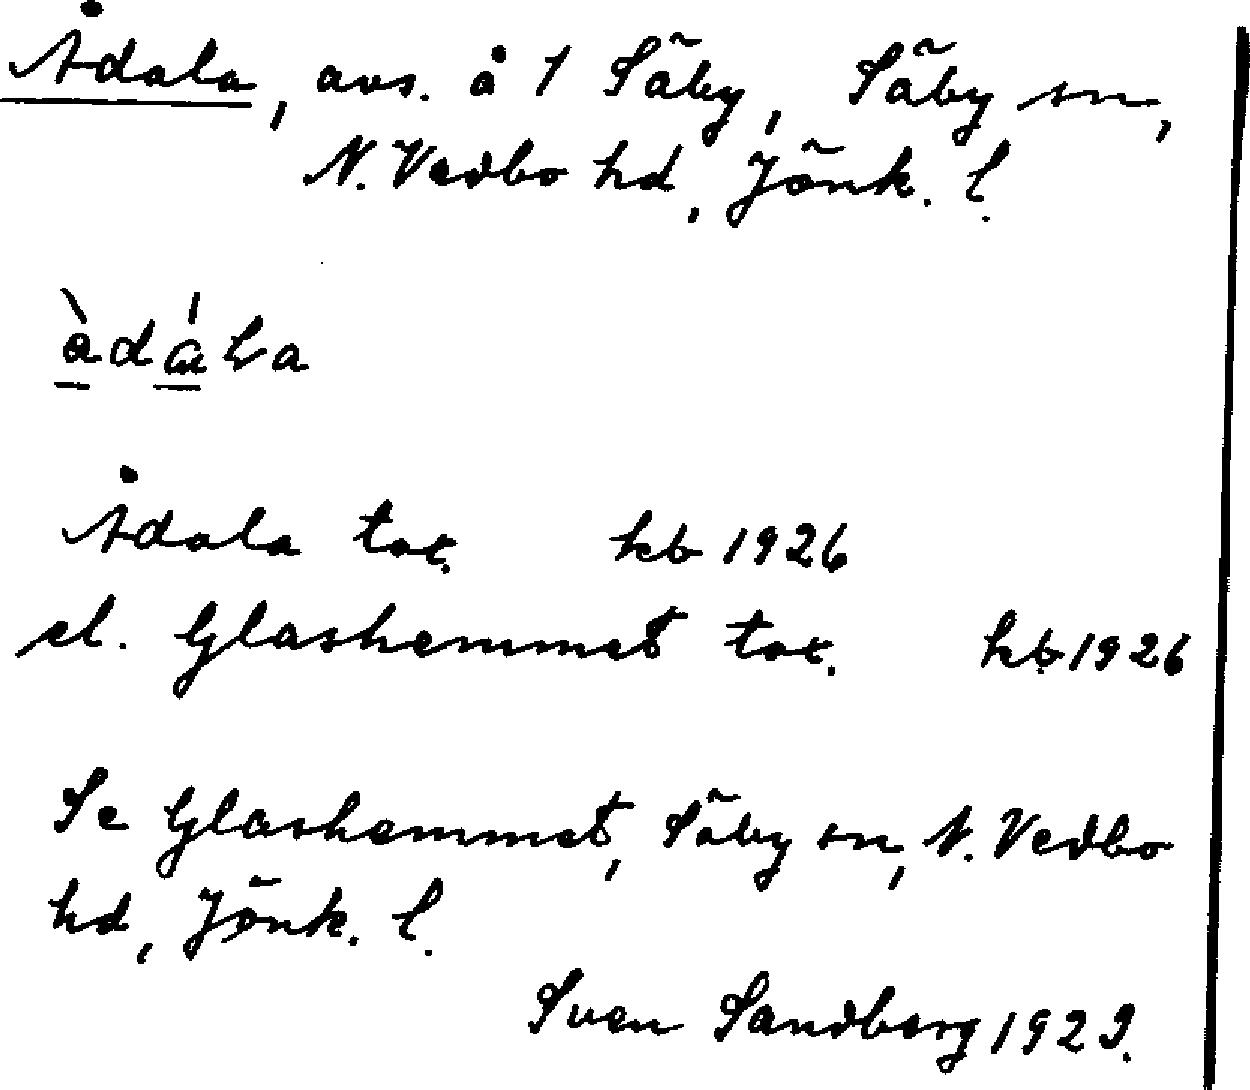 Ådala, avs. å 1 Säby, Säby sn,
N. Vedbo hd, Jönk. l.
àdála
Ådala tor. kb 1926
el. Glashemmet tor. kb 1926
Se Glashemmet, Säby sn, N. Vedbo
hd, Jönk. l.
Sven Sandberg 1929.